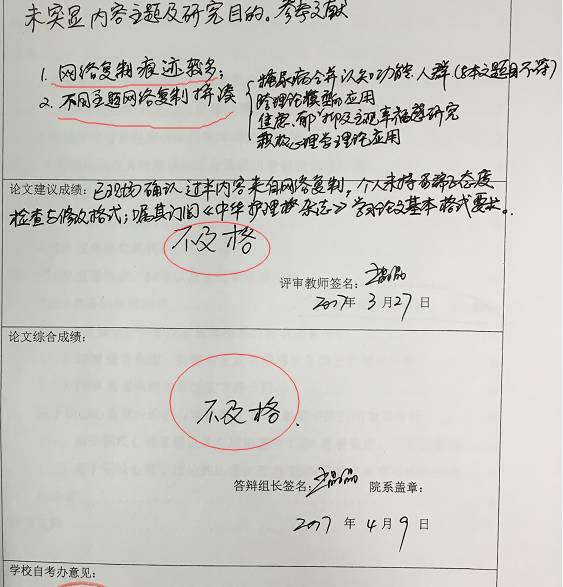 未突显内容主题及研究目的。参考文献
1. 网络复制痕迹较多;
2. 不同主题网络复制拼凑
糖尿病合并认知功能人群(与本文题目不符)
险理论模型的应用
焦虑、郁抑及主观幸福感研究
积极心理学理论应用
论文建议成绩:已现场确认过半内容来自网络复制,个人未持端正态度
检查与修改格式;嘱其订阅《中华护理杂志》学习论文基本格式要求。
不及格
评审教师签名:
2017年 3月27日
论文综合成绩:
不及格.
答辩组长签名: 院系盖章:
2017 年 4月 9日
学校自考办意见: